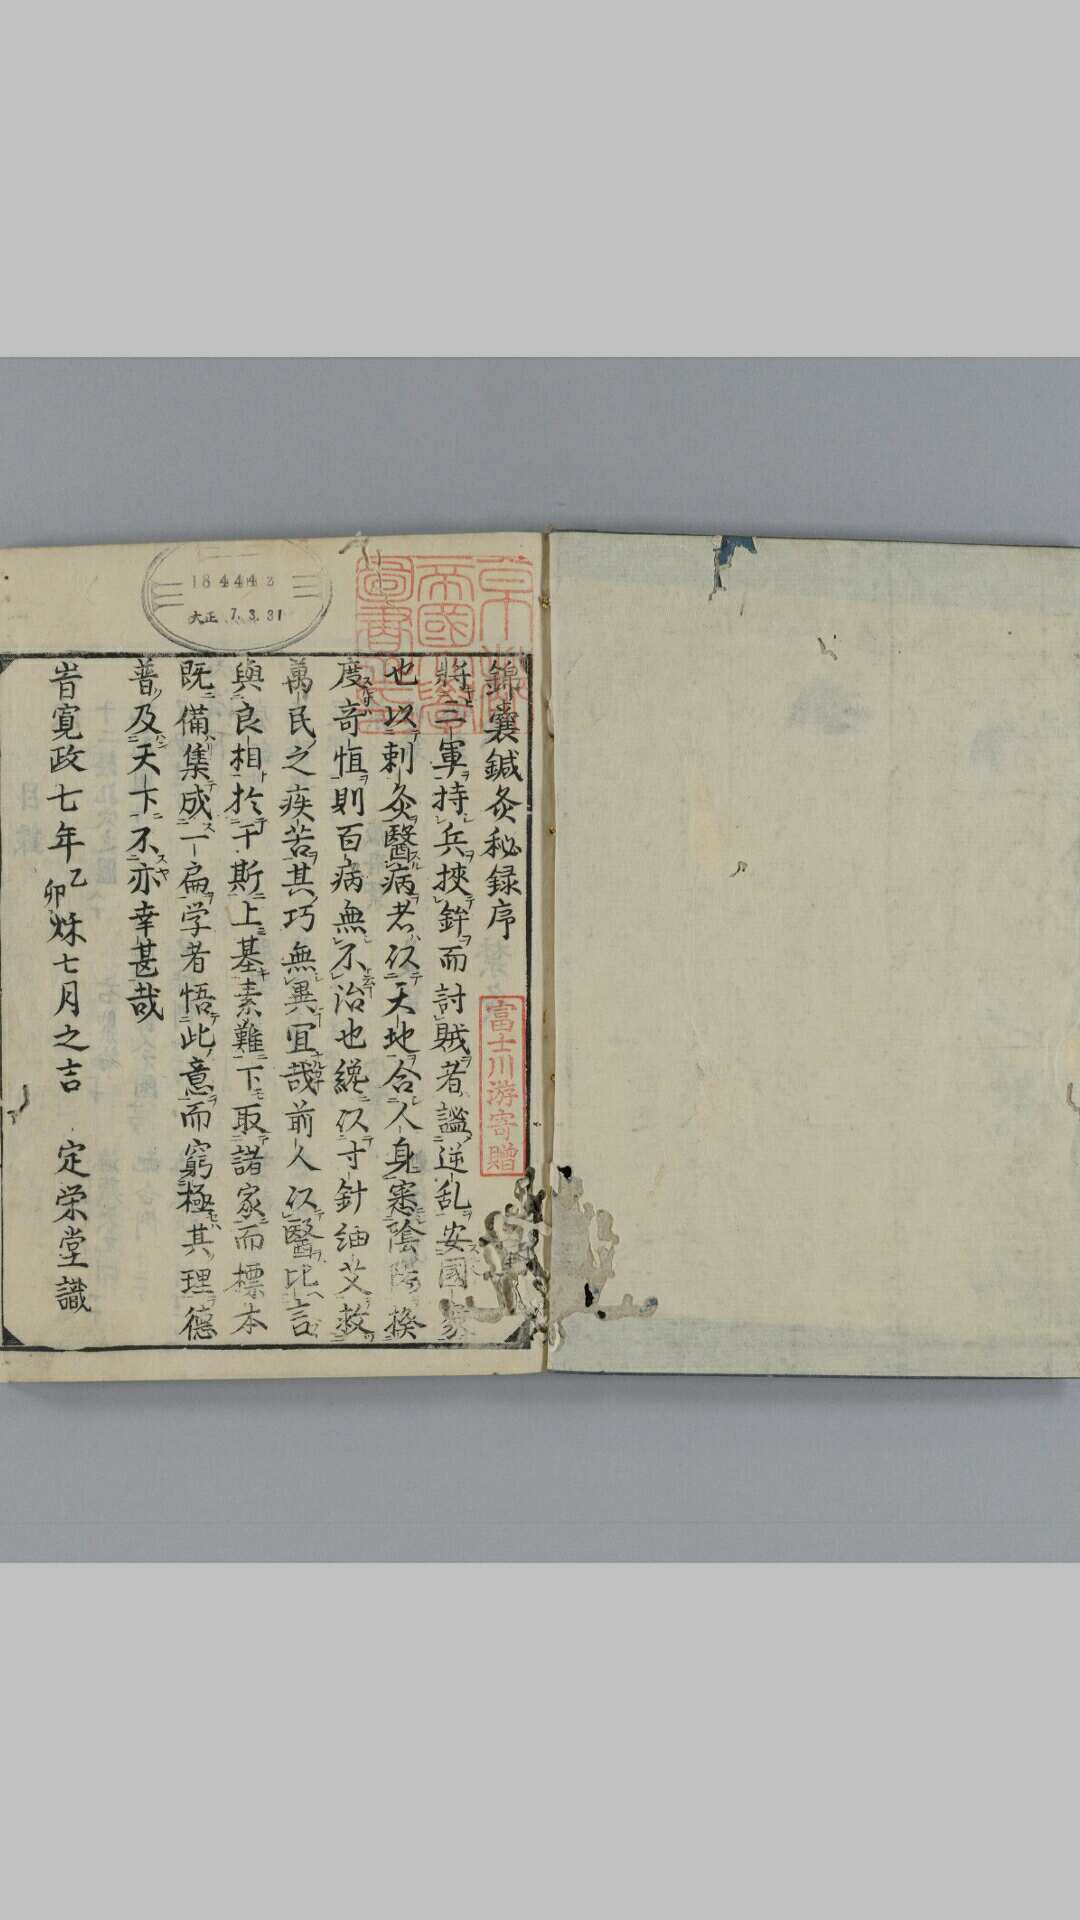 錦嚢鍼灸秘録序
將三軍持兵挾鉾而討賊者謐逆乱安國家
也以刺灸醫病者以天地合人身察陰陽揆
度奇恒則百病無不治也纔以寸針紬艾救
萬民之疾苦其巧無異冝哉前人以醫比言
與良相於于斯上基素難下取諸家而標本
既備集成一扁学者悟此意而窮極其理德
普及天下不亦幸甚哉
旹寛政七年乙卯烁七月之吉 定栄堂識
京都帝國大學圖書之印
富士川游寄贈
184443
大正 7.3.31